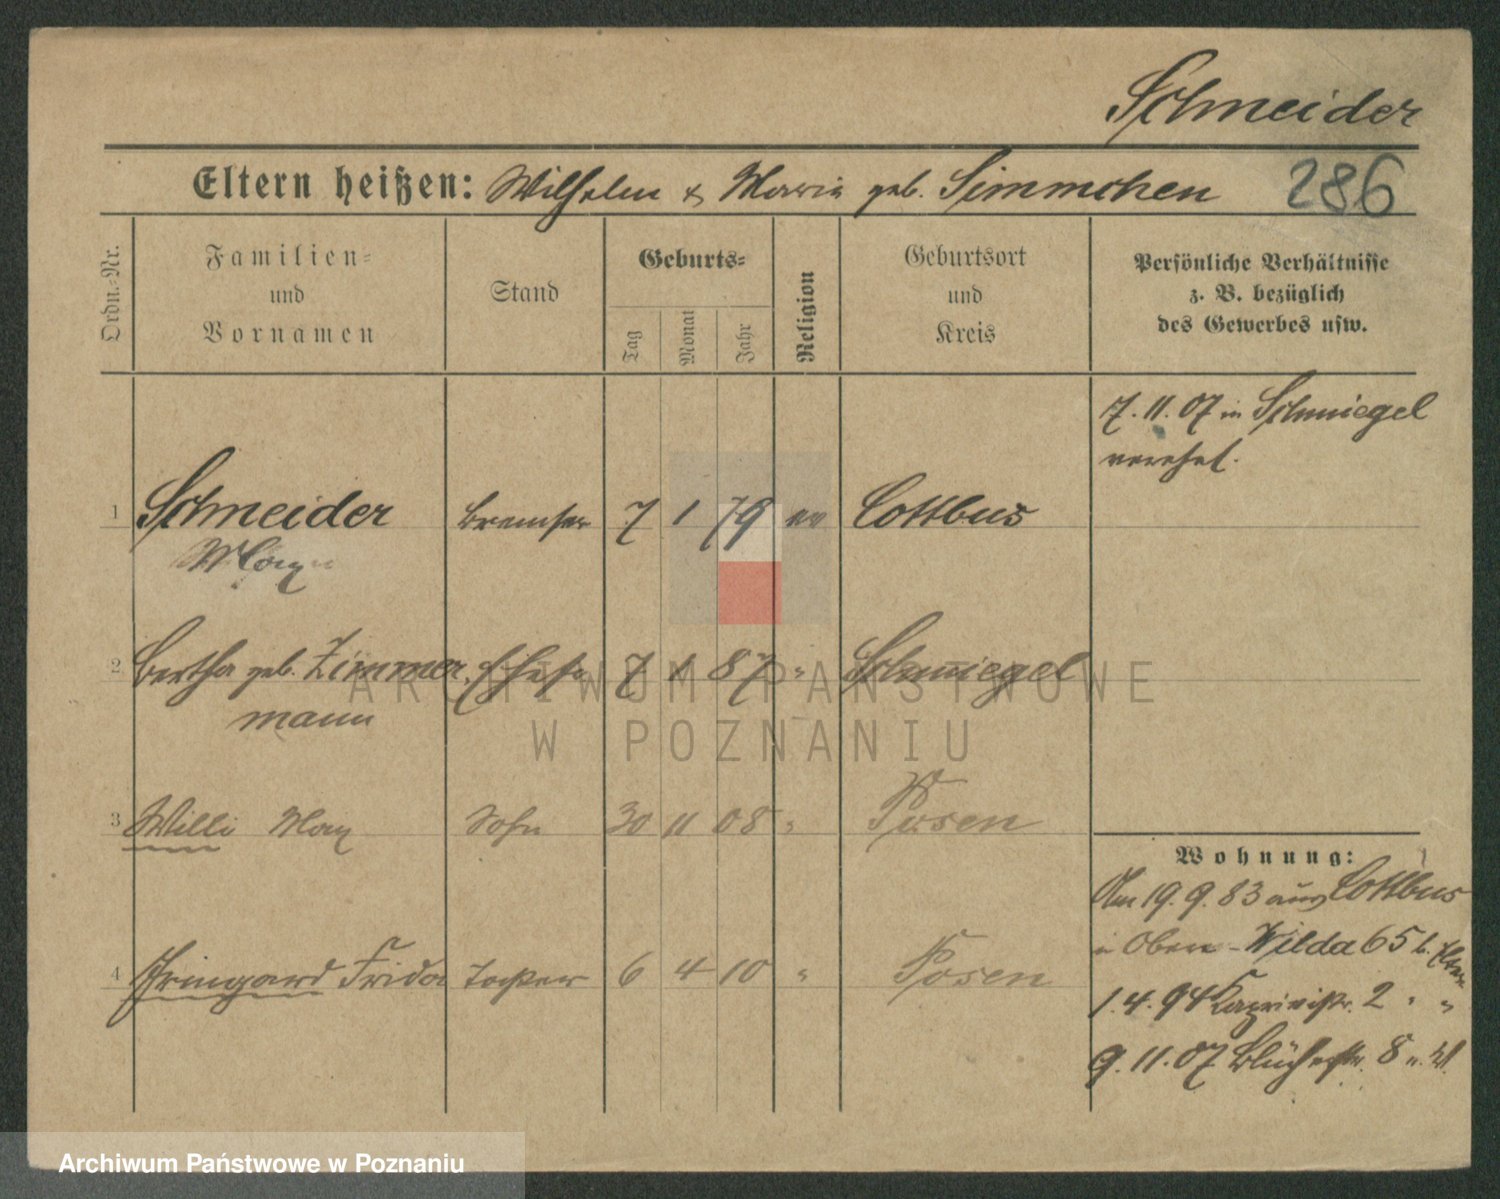 Schneider
Eltern heißen: Wilhelm & Maria geb. Simmchen 286
Ordn.-Nr.
Familien-
und
Vornamen
Stand
Geburts-
Tag
Monat
Jahr
Religion
Geburtsort
und
Kreis
Persönliche Verhältnisse
z. B. bezüglich
des Gewerbes usw.
7. 11. 07 in Schmiegel
verehel.
1 Schneider Bremser 7 1 79 ev Cottbus
Max
2 Bertha geb. Zimmer Ehefr 7 1 87 " Schmiegel
mann
3 Willi Max Sohn 30 11 08 " Posen
4 Irmgard Frida Tochter 6 4 10 " Posen
Wohnung:
Am 19. 9. 83 aus Cottbus
Ober-Wilda 65 b. Eltern
1. 4. 94 Caprivistr. 2 " "
9. 11. 07 Blücherstr. 8
ARCHIWUM PAŃSTWOWE
W POZNANIU
Archiwum Państwowe w Poznaniu